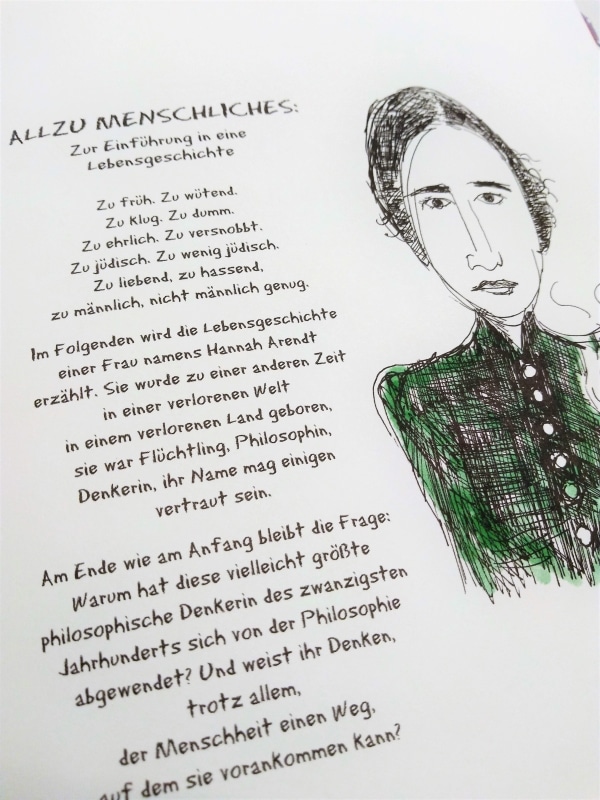 ALLZU MENSCHLICHES:
Zur Einführung in eine
Lebensgeschichte
Zu früh. Zu wütend.
Zu klug. Zu dumm.
Zu ehrlich. Zu versnobbt.
Zu jüdisch. Zu wenig jüdisch.
Zu liebend, zu hassend,
zu männlich, nicht männlich genug.
Im Folgenden wird die Lebensgeschichte
einer Frau namens Hannah Arendt
erzählt. Sie wurde zu einer anderen Zeit
in einer verlorenen Welt
in einem verlorenen Land geboren,
sie war Flüchtling, Philosophin,
Denkerin, ihr Name mag einigen
vertraut sein.
Am Ende wie am Anfang bleibt die Frage:
Warum hat diese vielleicht größte
philosophische Denkerin des zwanzigsten
Jahrhunderts sich von der Philosophie
abgewendet? Und weist ihr Denken,
trotz allem,
der Menschheit einen Weg,
auf dem sie vorankommen kann?